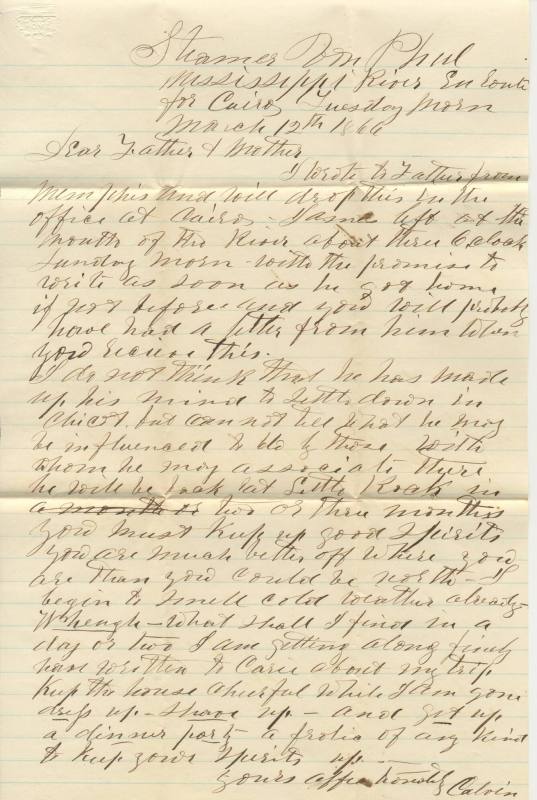 Steamer Von Phul
Mississippi River En Route
for Cairo, Tuesday Morn
March 12th 1866
Dear Father & Mother
I wrote to Father from
Memphis and will drop this in the
office at Cairo - James left at the
Mouth of the River about three Oclock
Sunday Morn - with the promise to
write as soon as he got home
if not before and you will probably
have had a letter from him when
you recieve this.
I do not think that he has made
up his mind to settle down in
Chicot, but can not tell what he may
be influenced to do by those with
whom he may associate there
he will be back at Little Rock in
a month or two or three months
you must keep up good spirits
you are much better off where you
are than you could be north - I
begin to smell cold weather already -
Wheugh - What shall I find in a
day or two I am getting along finely
have written to Carie about my trip
Keep the house cheerful while I am gone
dress up - shave up - and get up
a dinner party - a frolic of any kind
to keep your spirits up -
yours affectionately Calvin